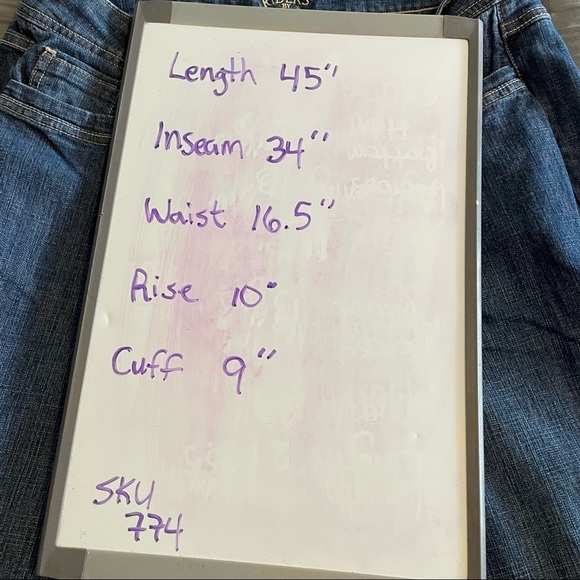 RIDERS
Length 45"
Inseam 34"
Waist 16.5"
Rise 10"
Cuff 9"
SKU
774